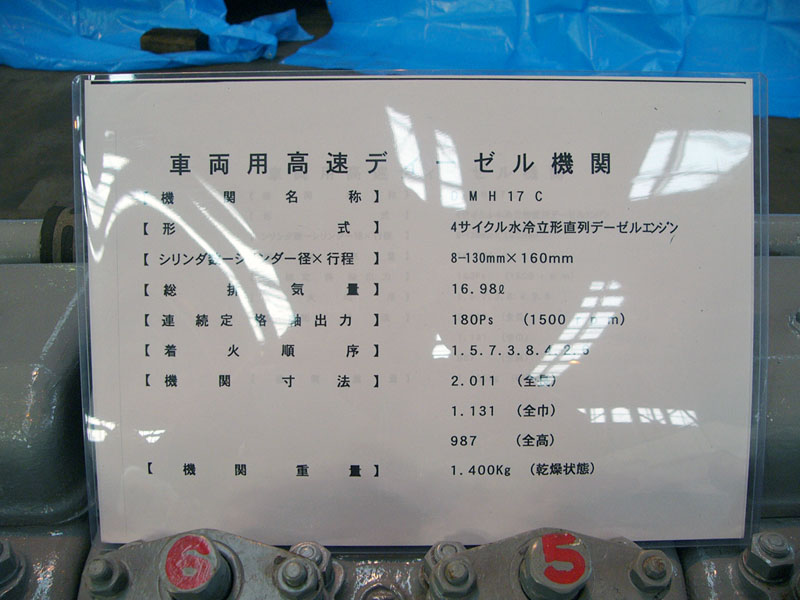 車両用高速ディーゼル機関
【機関名称】 DMH17C
【形式】 4サイクル水冷立形直列デーゼルエンジン
【シリンダ数－シリンダー径×行程】 8-130mm×160mm
【総排気量】 16.98ℓ
【連続定格軸出力】 180Ps (1500rpm)
【着火順序】 1.5.7.3.8.4.2.6
【機関寸法】 2.011 (全長)
1.131 (全巾)
987 (全高)
【機関重量】 1.400Kg (乾燥状態)
6 5